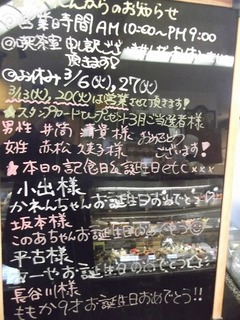 のお知らせ
営業時間 AM 10:00〜PM 9:00
喫茶室
頂きます!
お休み 3/6(火),27(火)
3/13(火),20(火)は営業させて頂きます!
★スタンプカードプレゼント3月ご当選者様
男性 井筒 様 おめでとう
女性 赤松 様 ございます!
★本日の記念日&お誕生日etc xxx
小出様
かれんちゃんお誕生日おめでとう
坂本様
このあちゃんお誕生日おめでとう
平古様
お誕生日おめでとう
長谷川様
ももか9才お誕生日おめでとう!!